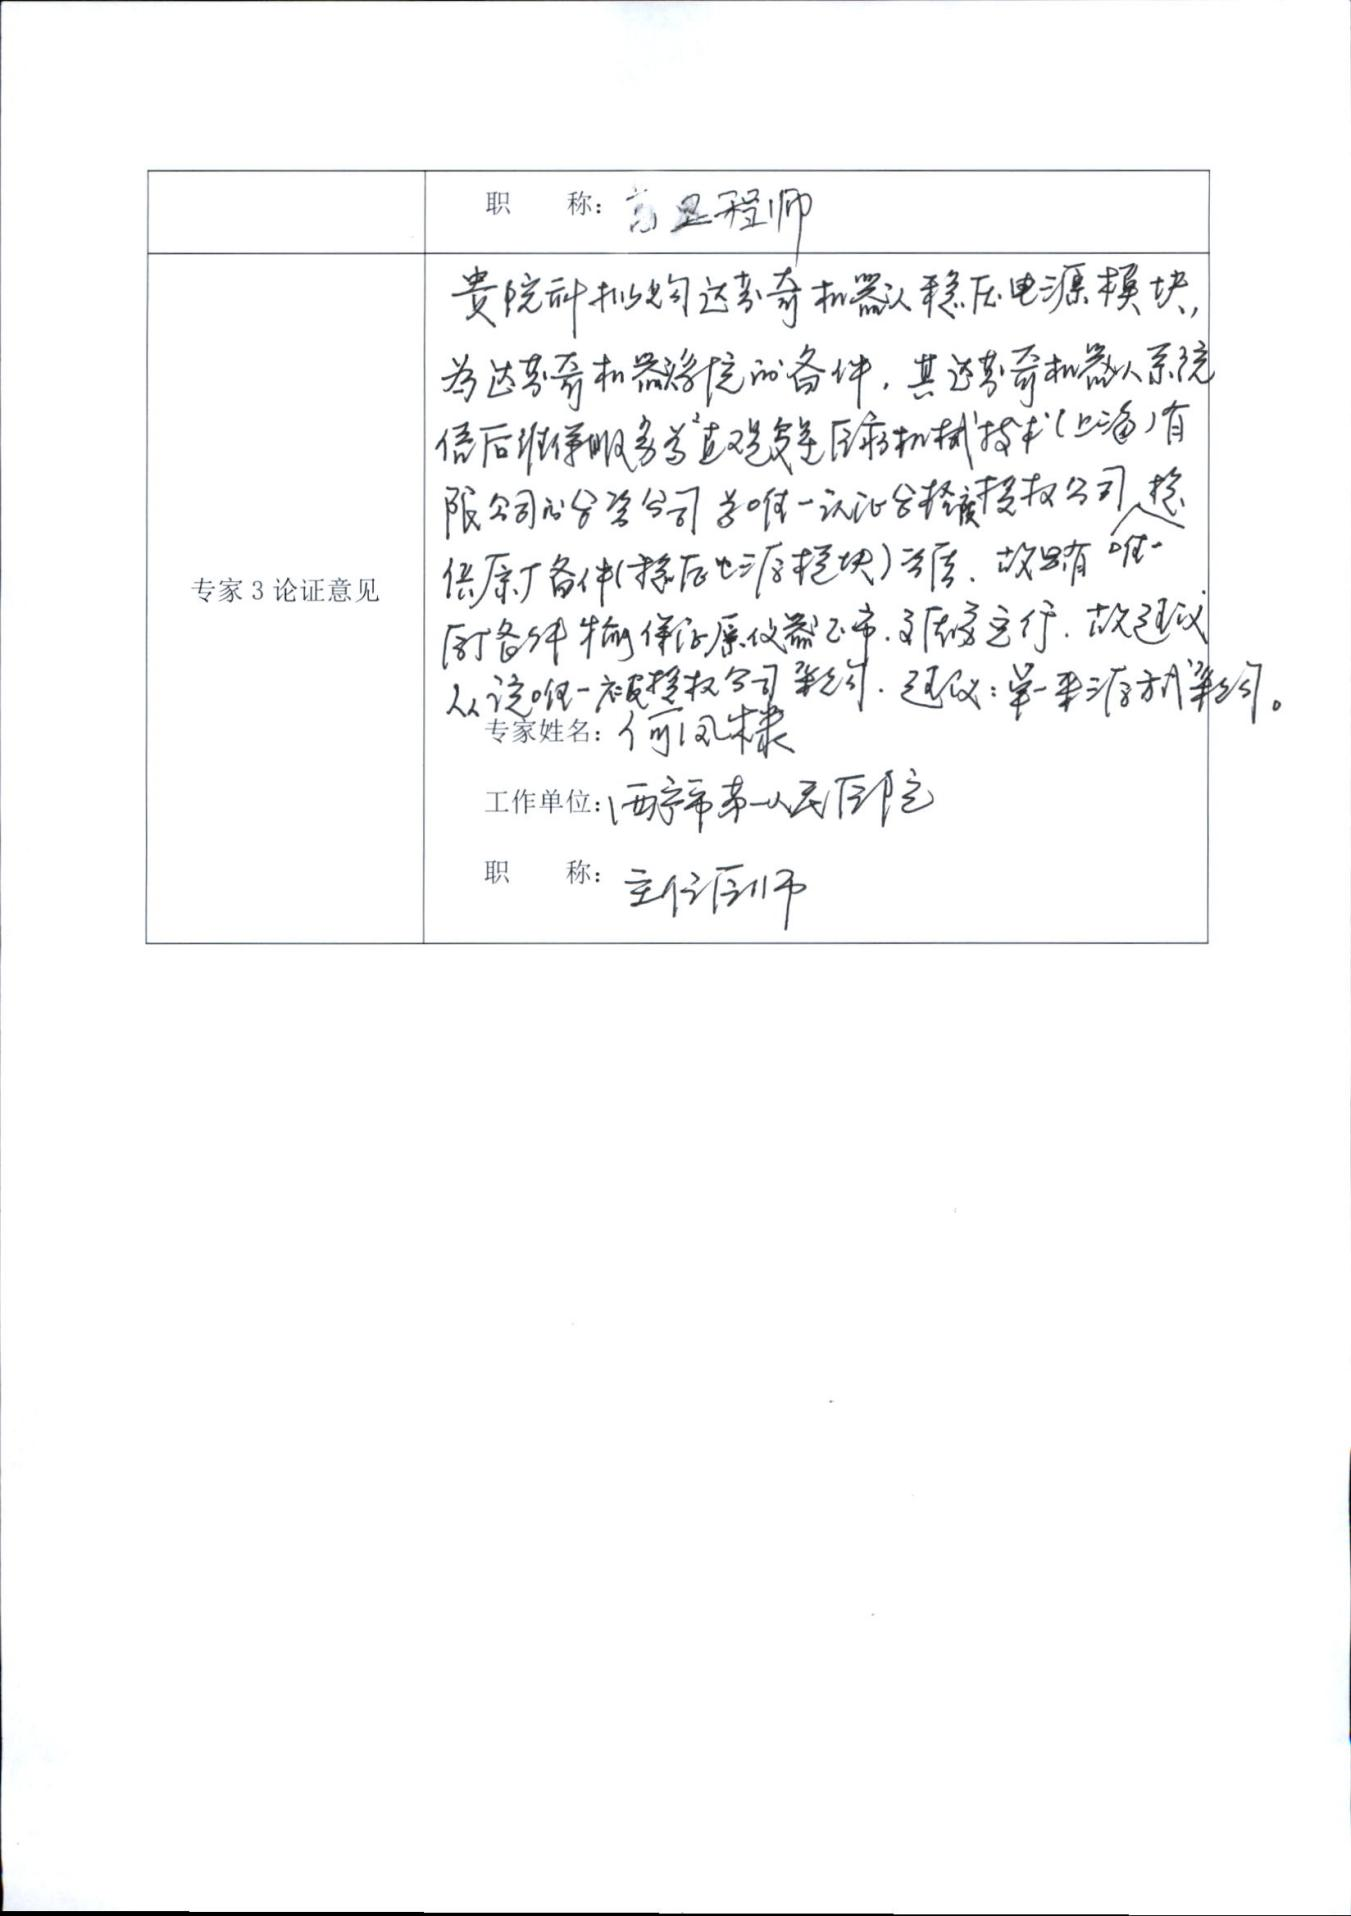 职 称：高级工程师
贵院计拟购达芬奇机器人稳压电源模块，
为达芬奇机器 的备件，其达芬奇机器人系统
售后维保服务为直观复星医疗机械技术（上海）有
限公司的分 公司 为唯一认证 授权公司 提
供原厂备件（稳压电源模块） ，故只有 唯一
原厂备件 保证原仪器正常、 运行，故建议
从该唯一被授权公司采购，建议：单一来源方式采购。
专家3论证意见
专家姓名：何凤
工作单位：西宁市第一人民医院
职 称：主任医师